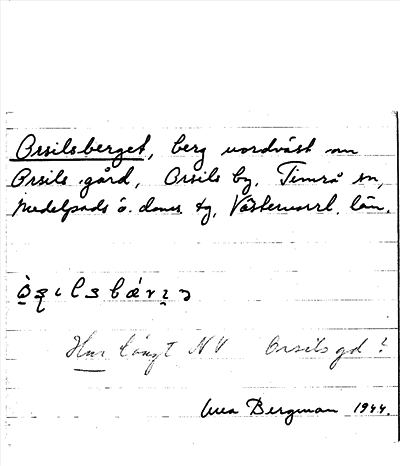 Orsilsberget, berg nordväst om
Orsils gård, Orsils by, Timrå sn,
Medelpads ö. doms. tg, Västernorrl. län.
Hur långt NV Orsils gd?
Anna Bergman 1944.